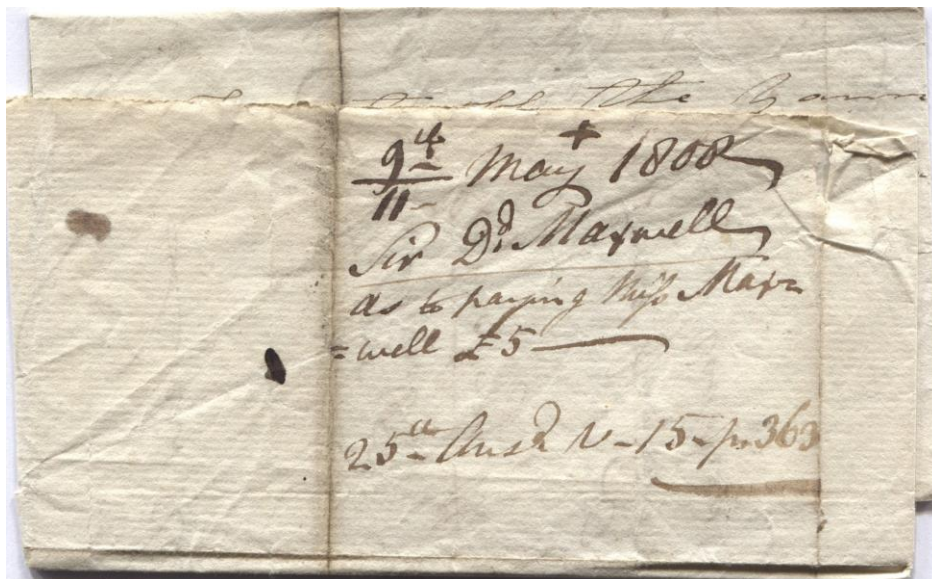 the
9th May 1808
11
Sir Dd. Maxwell
as to paying Miss Max
=well £5
25th Ansd V-15-p.363